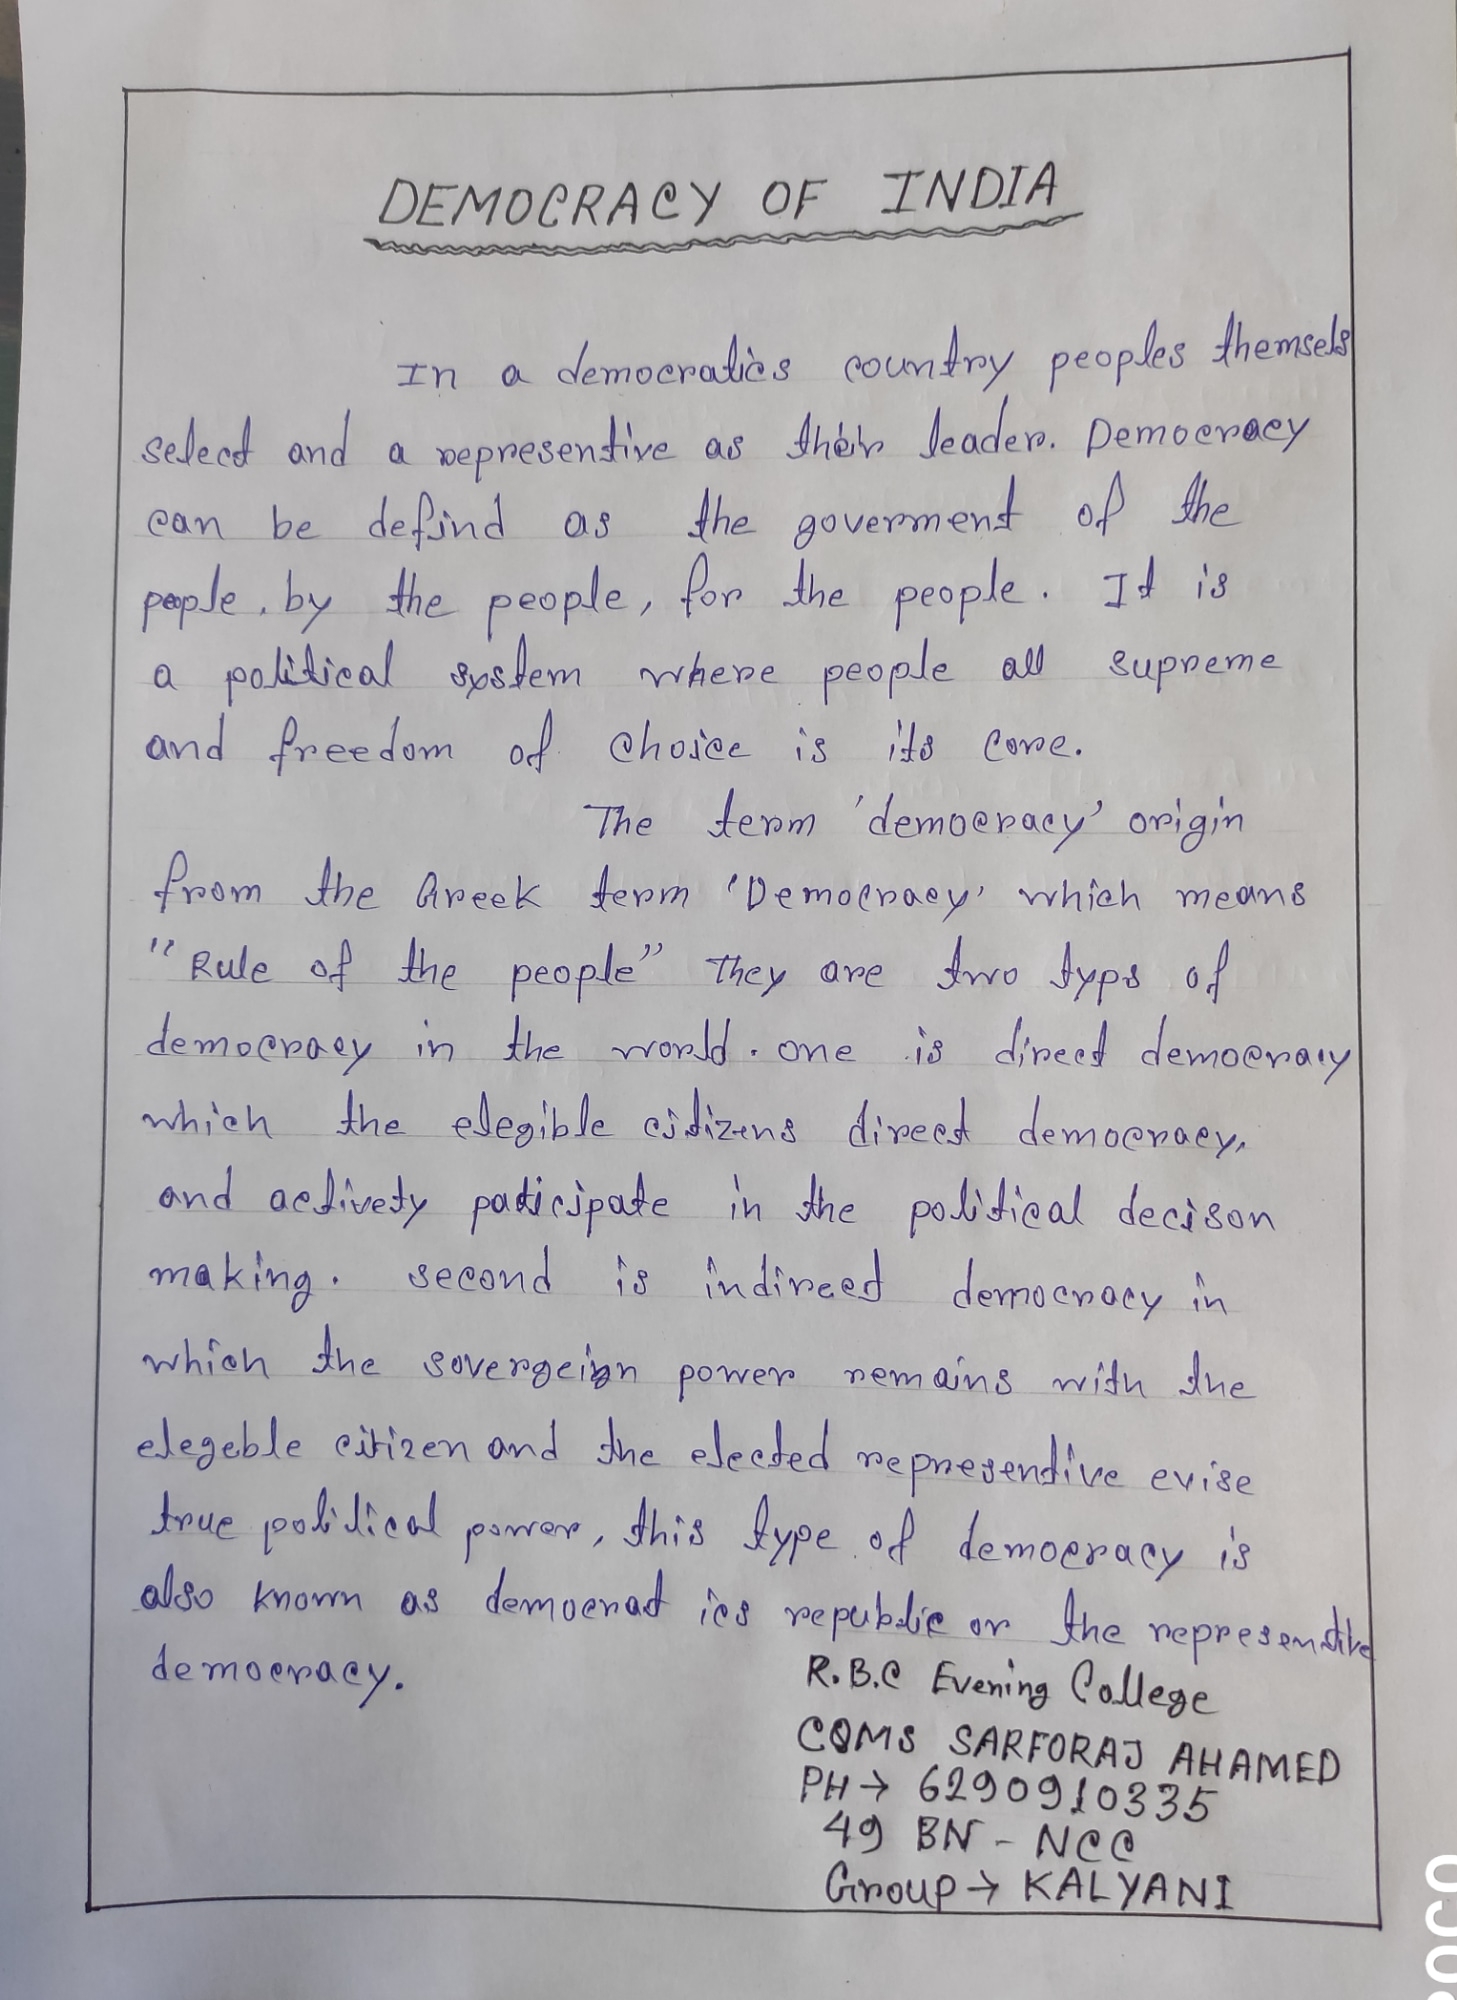 DEMOCRACY OF INDIA
In a democratics country peoples themsels
select and a representive as their leader. Democracy
can be defind as the goverment of the
pople, by the people, for the people. It is
a political system where people all supreme
and freedom of choice is its core.
The term 'democracy' origin
from the Greek term 'Democracy' which means
"Rule of the people" They are two typs of
democracy in the world. one is direct democracy
which the elegible citizens direct democracy,
and activety paticipate in the political decison
making. second is indireed democracy in
which the sovergeign power remains with the
elegeble citizen and the elected representive evise
true political power, this type of democracy is
also known as democrat ics republic or the representive
democracy.
R.B.C Evening College
CQMS SARFORAJ AHAMED
PH → 6290910335
49 BN - NCC
Group → KALYANI
POCO